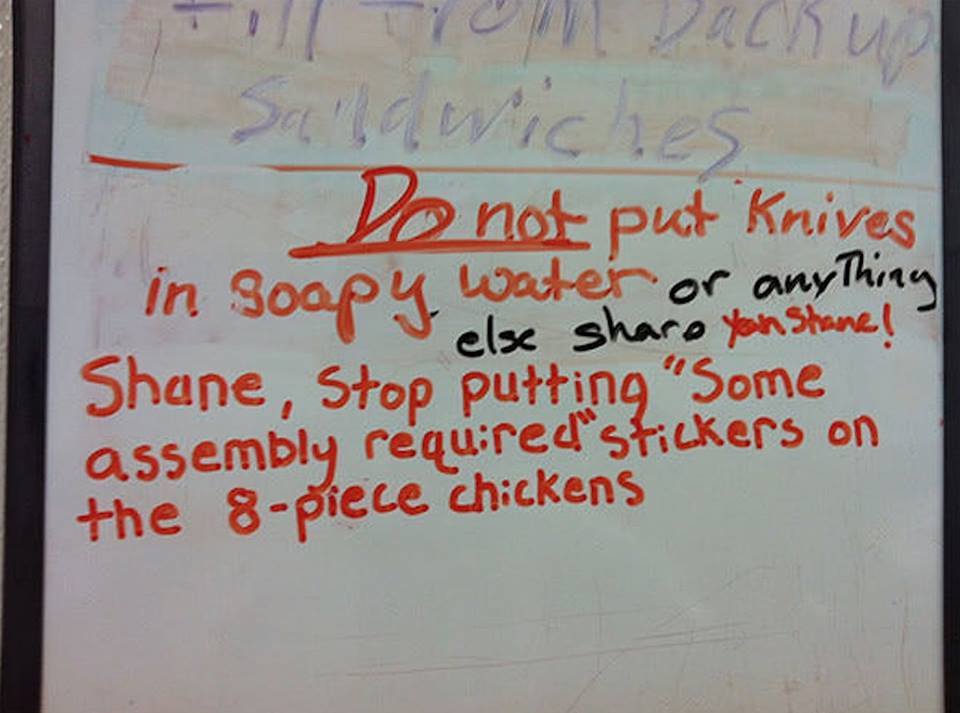 Fill From Backup
Sandwiches
Do not put Knives
in soapy water or anyThing
else sharp Yeah Shane!
Shane, Stop putting "Some
assembly required" stickers on
the 8-piece chickens